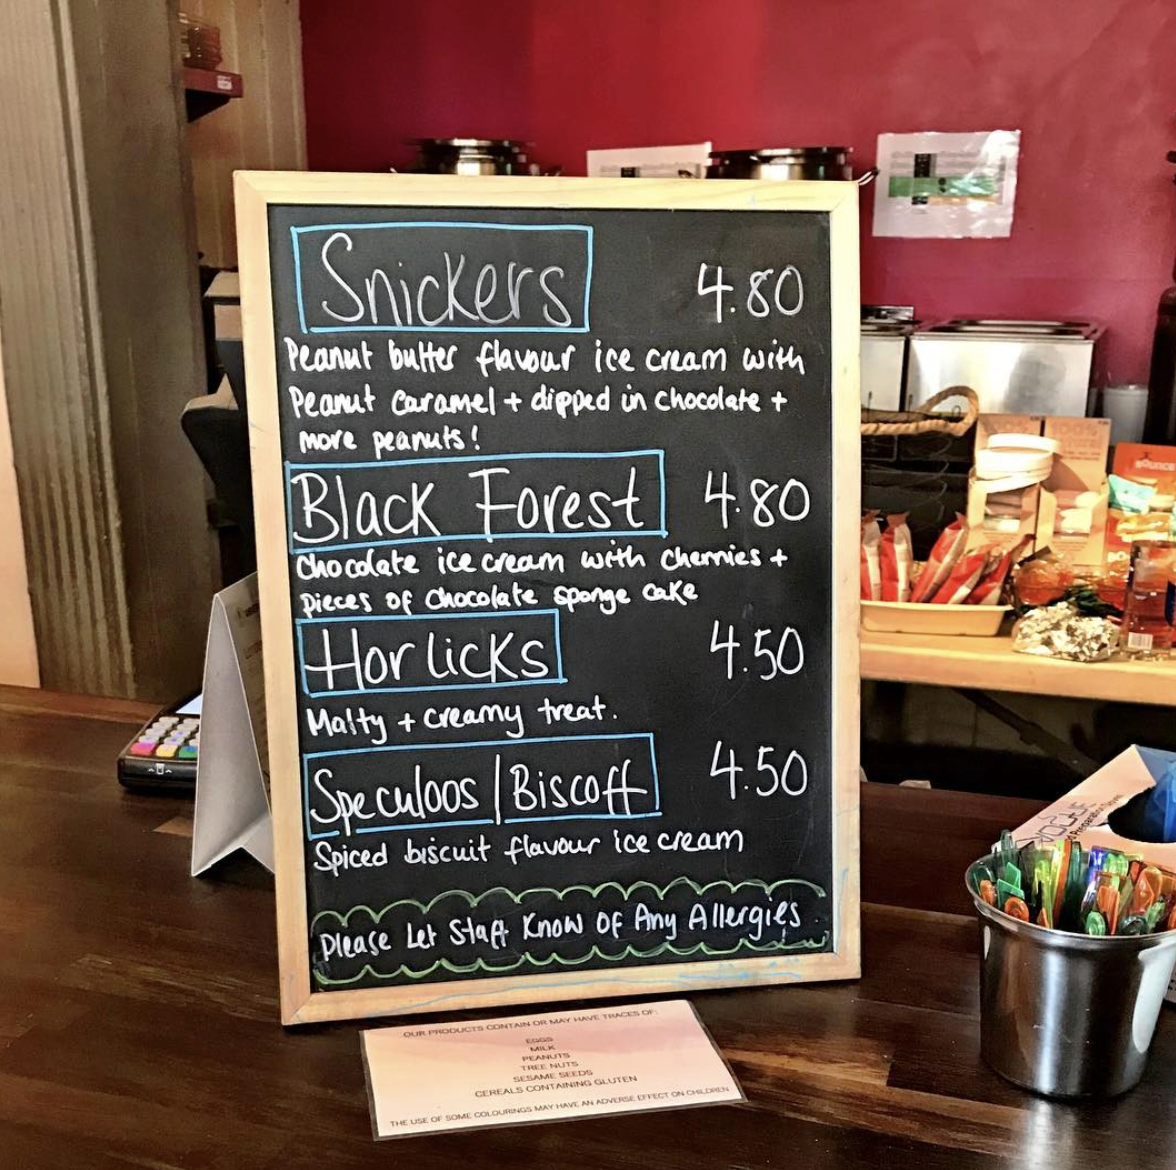 Snickers 4.80
Peanut butter flavour ice cream with
Peanut Caramel + dipped in chocolate +
more peanuts!
Black Forest 4.80
Chocolate ice cream with cherries +
pieces of chocolate sponge cake
Horlicks 4.50
Malty + creamy treat.
Speculoos | Biscoff 4.50
Spiced biscuit flavour ice cream
Please Let Staff Know Of Any Allergies
OUR PRODUCTS CONTAIN OR MAY HAVE TRACES OF:
EGGS
MILK
PEANUTS
TREE NUTS
SESAME SEEDS
CEREALS CONTAINING GLUTEN
THE USE OF SOME COLOURINGS MAY HAVE AN ADVERSE EFFECT ON CHILDREN
BOUNCE